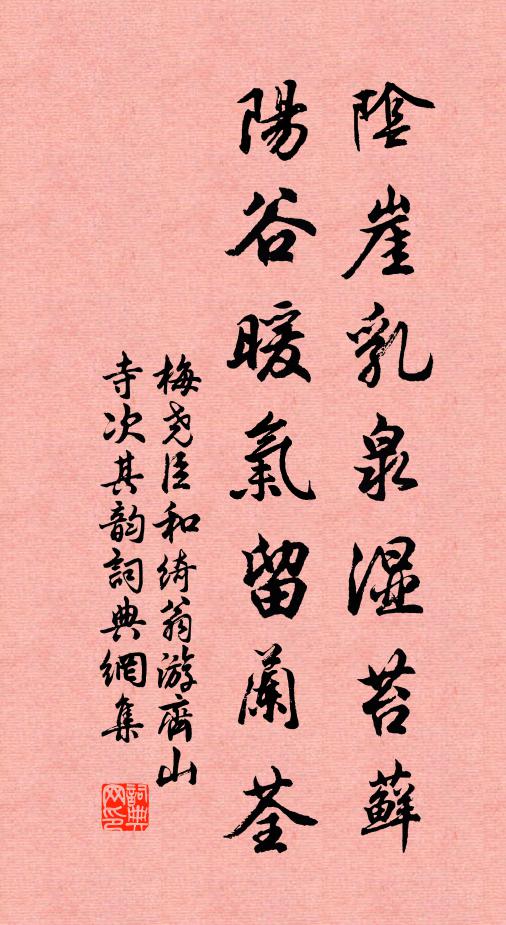 陰崖乳泉濕苔蘚
陽谷暖氣留蘭荃
梅堯臣和綺翁游齊山
寺次其韵詞典網集
詞典
网印